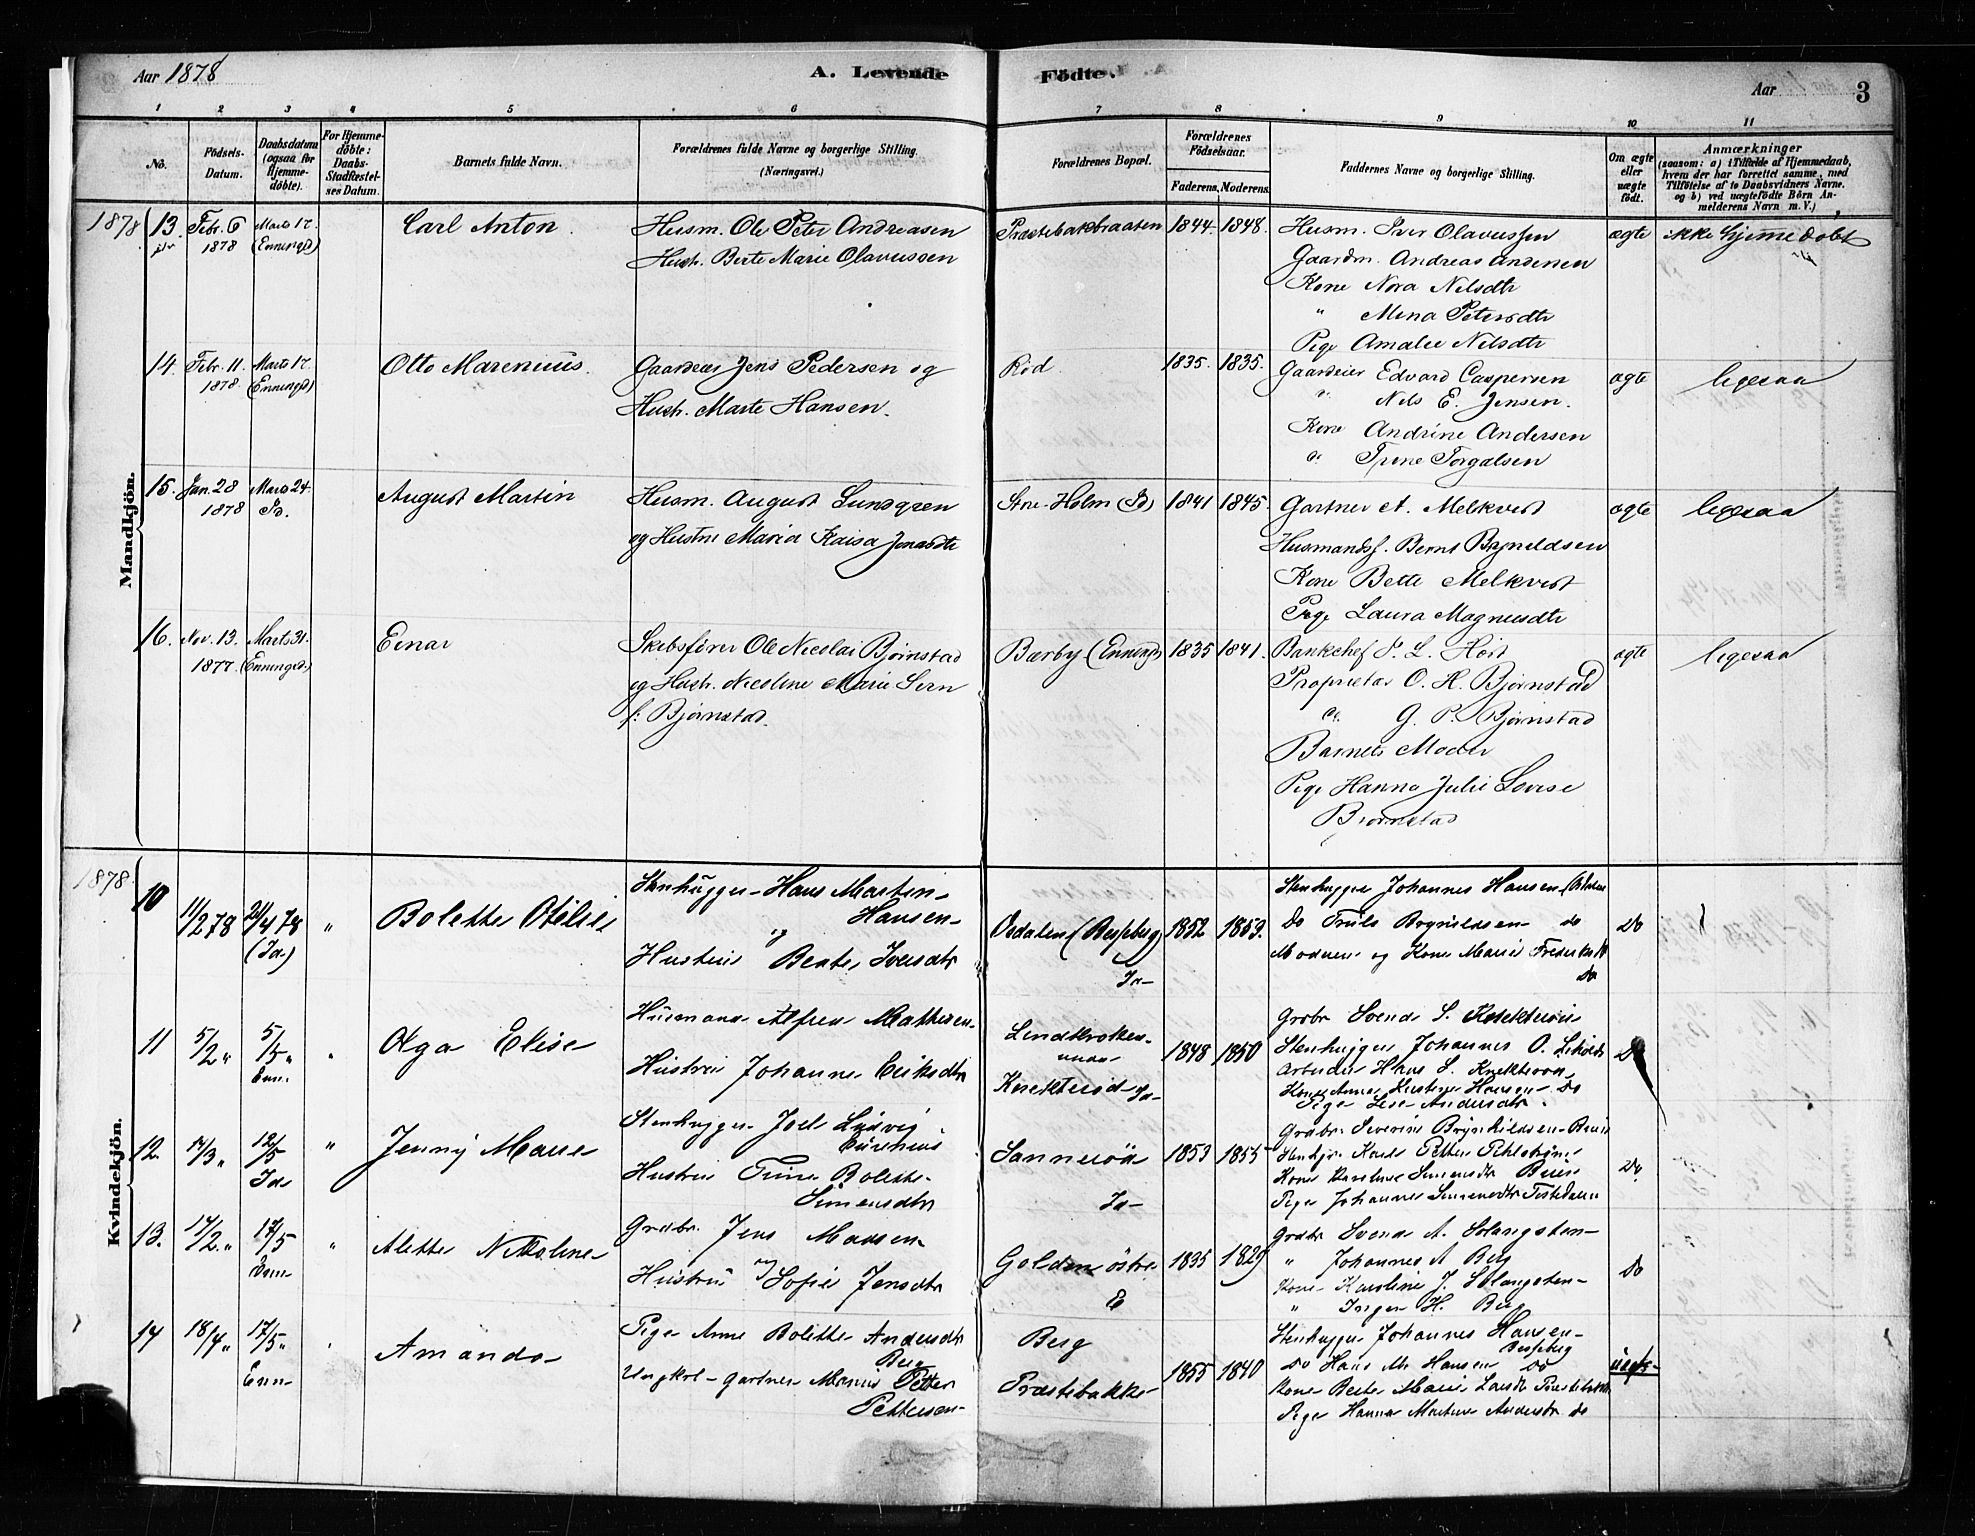 Aar 1878
A. Levende
Födte.
Aar
3
1 2 3 4 5 6 7 8 9 10 11
No.
Födsels-
Datum.
Daabsdatum
(ogsaa for
Hjemme-
döbte).
For Hjemme-
döbte:
Daabs-
Stadfæstel-
ses Datum.
Barnets fulde Navn.
Forældrenes fulde Navne og borgerlige Stilling.
(Næringsvei.)
Forældrenes Bopæl.
Forældrenes
Födselsaar.
Faderens. Moderens.
Faddernes Navne og borgerlige Stilling.
Om ægte
eller
uægte
födt.
Anmærkninger
(saasom: a) i Tilfælde af Hjemmedaab,
hvem der har forrettet samme, med
Tilföielse af to Daabsvidners Navne.
og b) ved uægtefödte Börn An-
melderens Navn m. V.)
Mandkjön.
1878 13. Febr. 6 Marts 17. Carl Anton Husm. Ole Peter Andreasen Præstebakbraaten 1844. 1848. Husm. Iver Olavussen ægte ikke hjemmedøbt
1878 (Enningd) Hustr. Berte Marie Olavussen Gaardm. Andreas Andersen
Kone Nora Nilsdtr
" Mena Petersdtr
Pige Amalie Nilsdtr
14. Febr. 11. Marts 17. Otto Marenius. Gaardeier Jens Pedersen og Rød. 1835. 1835. Gaardeier Edvard Caspersen ægte ligesaa
1878 (Enningd) Hustr. Marte Hansen. " Nils E. Jensen.
Kone Andrine Andersen
Do Trine Torgalsen
15. Jan. 28 Marts 24. August Martin Husm. August Lundgren Stne-Holm (Id) 1841 1845. Gartner A. Melkvist ægte ligesaa
1878 Id. og Hustru Maria Kaisa Jonasdtr Husmandsf. Bernt Brynildsen
Kone Bette Melkvist
Pige Laura Magnusdtr
16. Nov. 13. Marts 31. Einar Skibsfører Ole Nicolai Bjørnstad Bærby (Enningd) 1835 1841. Bankchef P. L. Høst ægte ligesaa
1877. (Enninged.) og Hustr. Nicoline Marie Lern Proprietær O. H. Bjørnstad
f: Bjørnstad. Do G. P. Bjørnstad
Barnets Moder
Pige Hanna Julie Lovise
Bjørnstad
Kvindekjön.
1878. 10 11/2 78 21/4 78 " Bolette Otilie Stenhugger Hans Martin Hansen Osdalen (Bessberg) 1852 1853. Stenhugger Johannes Hansen
(Id) og Do Truls Brynildsen do Do
Hustru Beate Iversdtr Id Moderen og Kone Marie
Do
11 5/2 " 5/5 " " Olga Elise Husmand Alfred Mathisen 1848 1850 Grdbr Svend S. Knekterød Do
Enn. Hustru Johanne Eriksdtr Knekterød Id Stenhugger Johannes O.
Arbeider Hans S. Knekterød
Kone Anne Kirstine Hansen Do
Pige Lise Andersdtr
12. 17/3 " 12/5 " Jenny Marie Stenhugger Joel Ludvig Sannerød 1853 1855 Grdbr. Severin Brynhildsen
Id Hustru Trine Bolette Simensdtr Id Do
Pige Johanne
13. 17/2 " 17/5 " Alette Nikoline Grdbr. Jens Madsen Golden østre 1835 1829 Grdbr Svend A. Slangsten Do
Enn og " Johannes A Berg
Hustru Sofie Jensdtr E Kone Karoline J. Slangsten
" Inger H. Berg
14 18/4 " 17/5 " Amanda Pige Anne Bolette Andersdtr Berg Berg 1855 1840 Stenhugger Johannes Hansen Bessberg uægte
Enn Ungkrl gartner Marius Petter Pettersen Præstebakke Do Hans M. Hansen Do
Kone Beate Marie
Pige Hanna Martine Andersdtr do